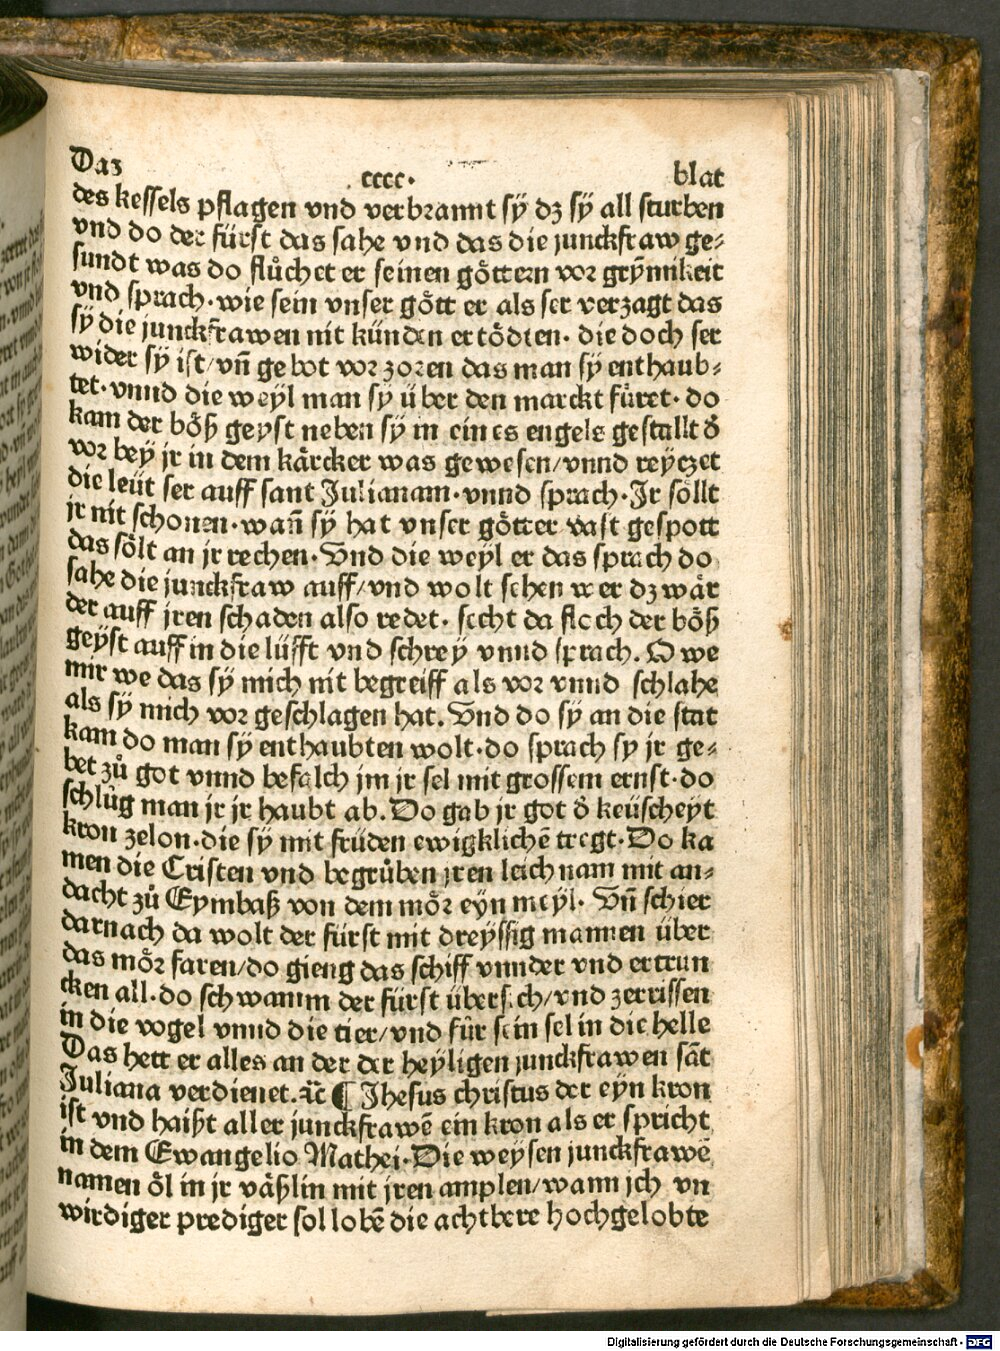 Daz cccc. blat
des kessels pflagen vnd verbrannt sÿ dz sÿ all sturben
vnd do der fürst das sahe vnd das die junckfraw ge⸗
sundt was do flůchet er seinen göttern vor grÿmikeit
vnd sprach. wie sein vnser gött er als ser verzagt das
sÿ die junckfrawen nit künden ertödten. die doch ser
wider sÿ ist/ vñ gebot vor zoren das man sÿ enthaub⸗
tet. vnnd die weÿl man sÿ über den marckt fůret. do
kam der böß geyst neben sÿ in eines engels gestallt ð
vor beÿ jr in dem kårcker was gewesen/ vnnd reÿtzet
die leüt ser auff sant Julianam. vnnd sprach. Jr söllt
jr nit schonen. wañ sÿ hat vnser götter vast gespott
das sölt an jr rechen. Vnd die weÿl er das sprach do
sahe die junckfraw auff/ vnd wolt sehen wer dz wår
der auff jren schaden also redet. secht da floch der böß
geÿst auff in die lüfft vnd schreÿ vnnd sprach. O we
mir we das sÿ mich nit begreiff als vor vnnd schlahe
als sÿ mich vor geschlagen hat. Vnd do sÿ an die stat
kam do man sÿ enthaubten wolt. do sprach sy jr ge⸗
bet zů got vnnd befalch jm jr sel mit grossem ernst. do
schlůg man jr jr haubt ab. Do gab jr got ð keüscheyt
kron zelon. die sÿ mit früden ewigklichē tregt. Do ka
men die Cristen vnd begrůben jren leichnam mit an⸗
dacht zů Eymbaß von dem mör eÿn meÿl. Vñ schier
darnach da wolt der fürst mit dreÿssig mannen über
das mör faren/ do gieng das schiff vnnder vnd ertrun
cken all. do schwamm der fürst übersich/ vnd zerrissen
in die vogel vnnd die tier/ vnd fůr sein sel in die helle
Das hett er alles an der der heÿligen junckfrawen sāt
Juliana verdienet. ꝛc̃ ¶ Jhesus christus der eÿn kron
ist vnd haißt aller junckfrawē ein kron als er spricht
in dem Ewangelio Mathei. Die weÿsen junckfrawē
namen öl in jr våßlin mit jren amplen/ wann jch vn
wirdiger prediger sol lobē die achtbere hochgelobte
Digitalisierung gefördert durch die Deutsche Forschungsgemeinschaft - DFG